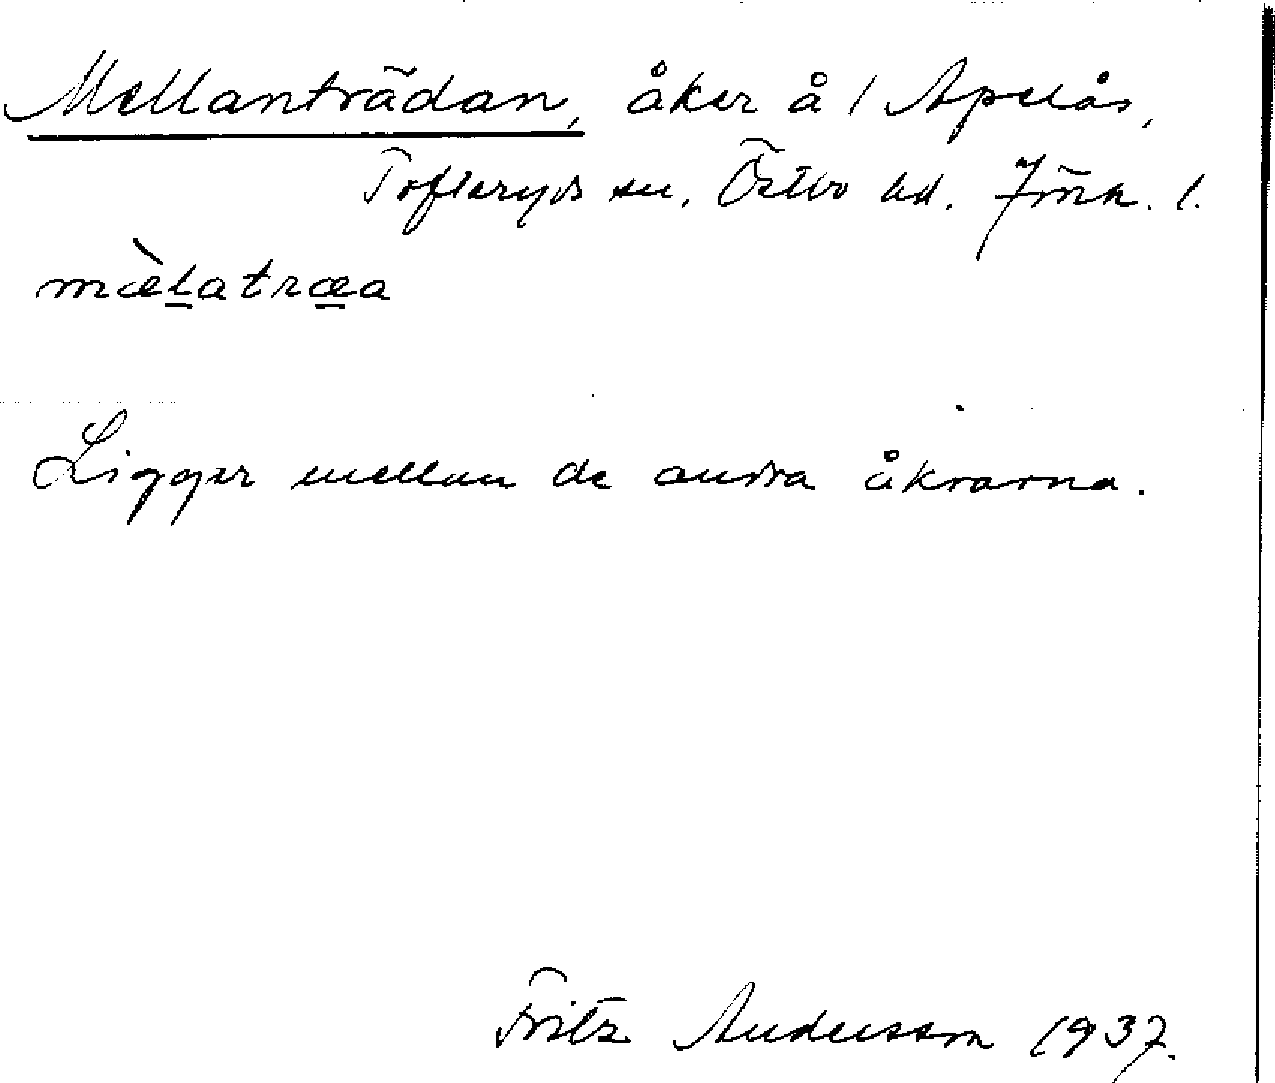 Mellanträdan, åker å 1 Apelås,
Tofteryds sn. Östbo hd. Jönk. l.
mæ̀l̲atræ̲a
Ligger mellan de andra åkrarna.
Fritz Andersson 1937.